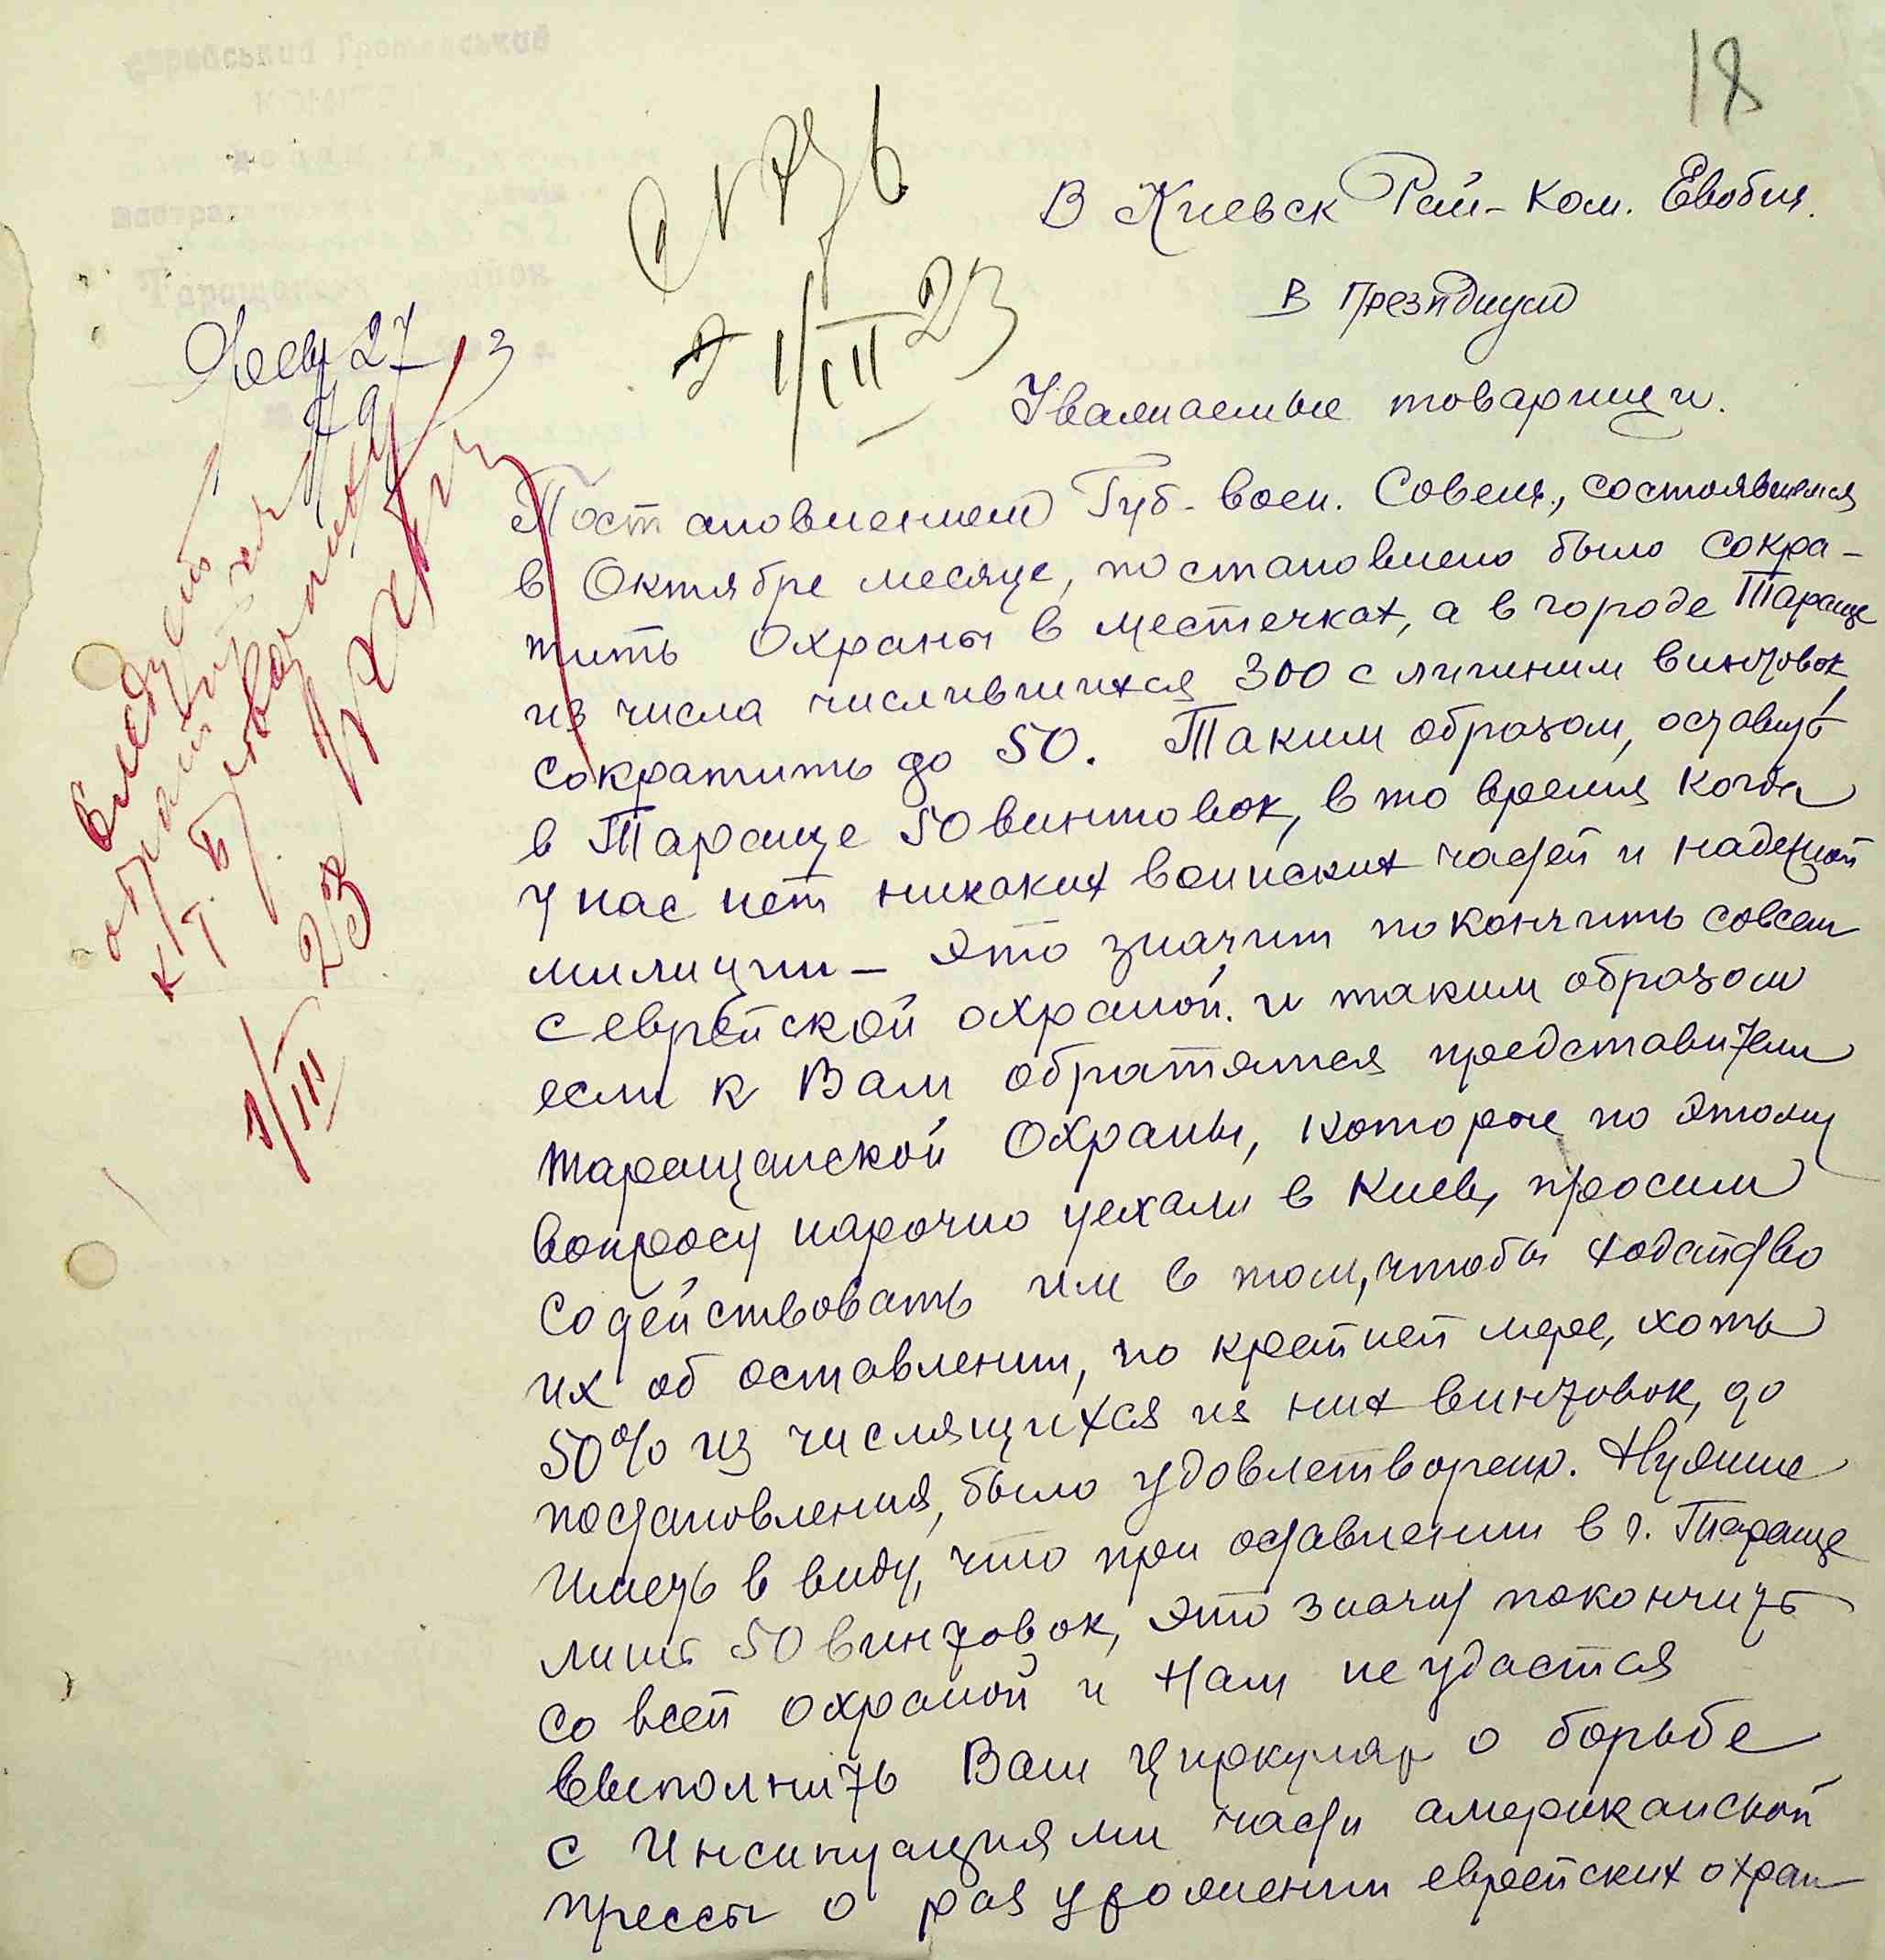 18
В Киевск Рай-Ком. Евобщ.
В Президиум
Уважаемые товарищи.
Постановлением Губ-воен. Совещ., состоявшемся
в Октябре месяце, постановлено было сокра-
тить Охраны в местечках, а в городе Тараще
из числа числившихся 300 с лишним винтовок
сократить до 50. Таким образом, оставить
в Тараще 50 винтовок, в то время когда
у нас нет никаких воинских частей и надежной
милиции – это значит покончить совсем
с еврейской охраной. и таким образом
если к Вам обратятся представители
таращанской Охраны, которые по этому
вопросу нарочно уехали в Киев, просим
содействовать им в том, чтобы ходатайство
их об оставлении, по крайней мере, хоть
50% из числящихся на них винтовок, до
постановления, было удовлетворено. Нужно
иметь в виду, что при оставлении в г. Тараще
лишь 50 винтовок, это значит покончить
со всей охраной и Нам не удастся
выполнить Ваш циркуляр о борьбе
с Инсинуациями части американской
прессы о разоружении еврейских охран
Следует
обратиться
к т.
1/III 23
1/III 23